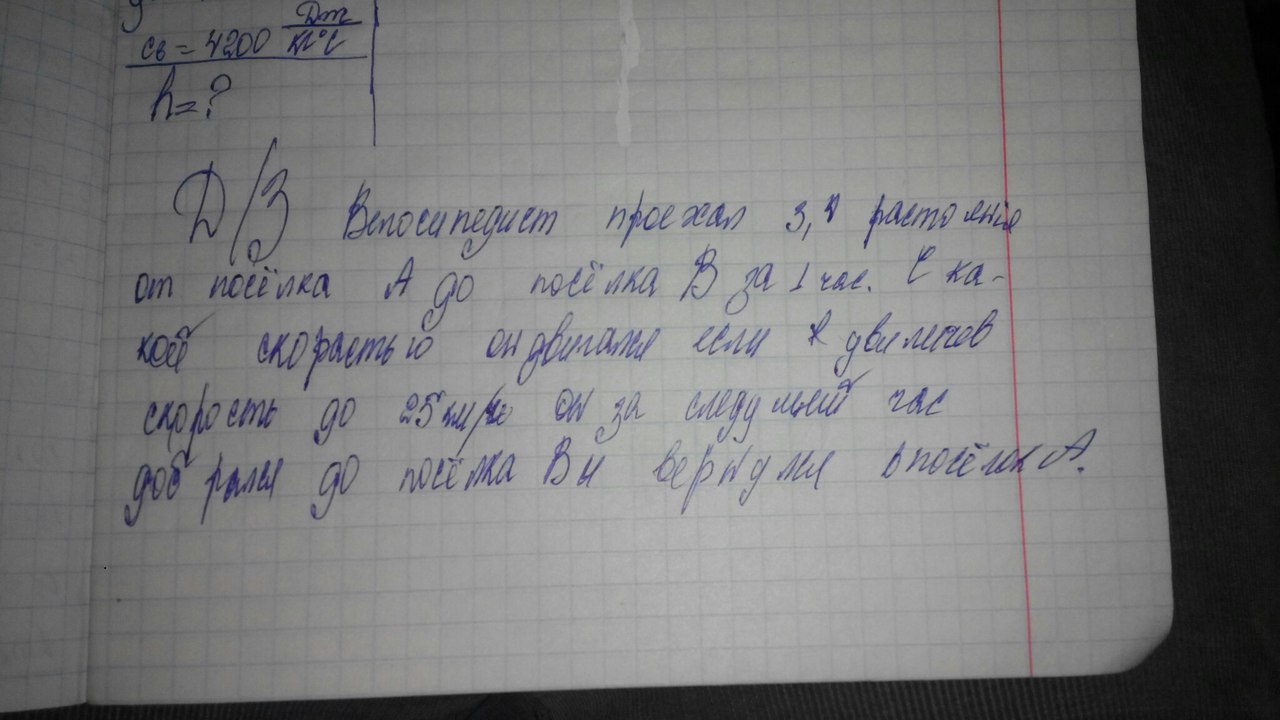 Дж
cв = 4200 кг°C
h = ?
Д/З Велосипедист проехал 3,4 растояния
от посёлка А до посёлка В за 1 час. С ка-
кой скорастью он двигался если
скорость до 25 км/ч он за следующий час
добрался до посёлка В и вернулся в посёлок А.